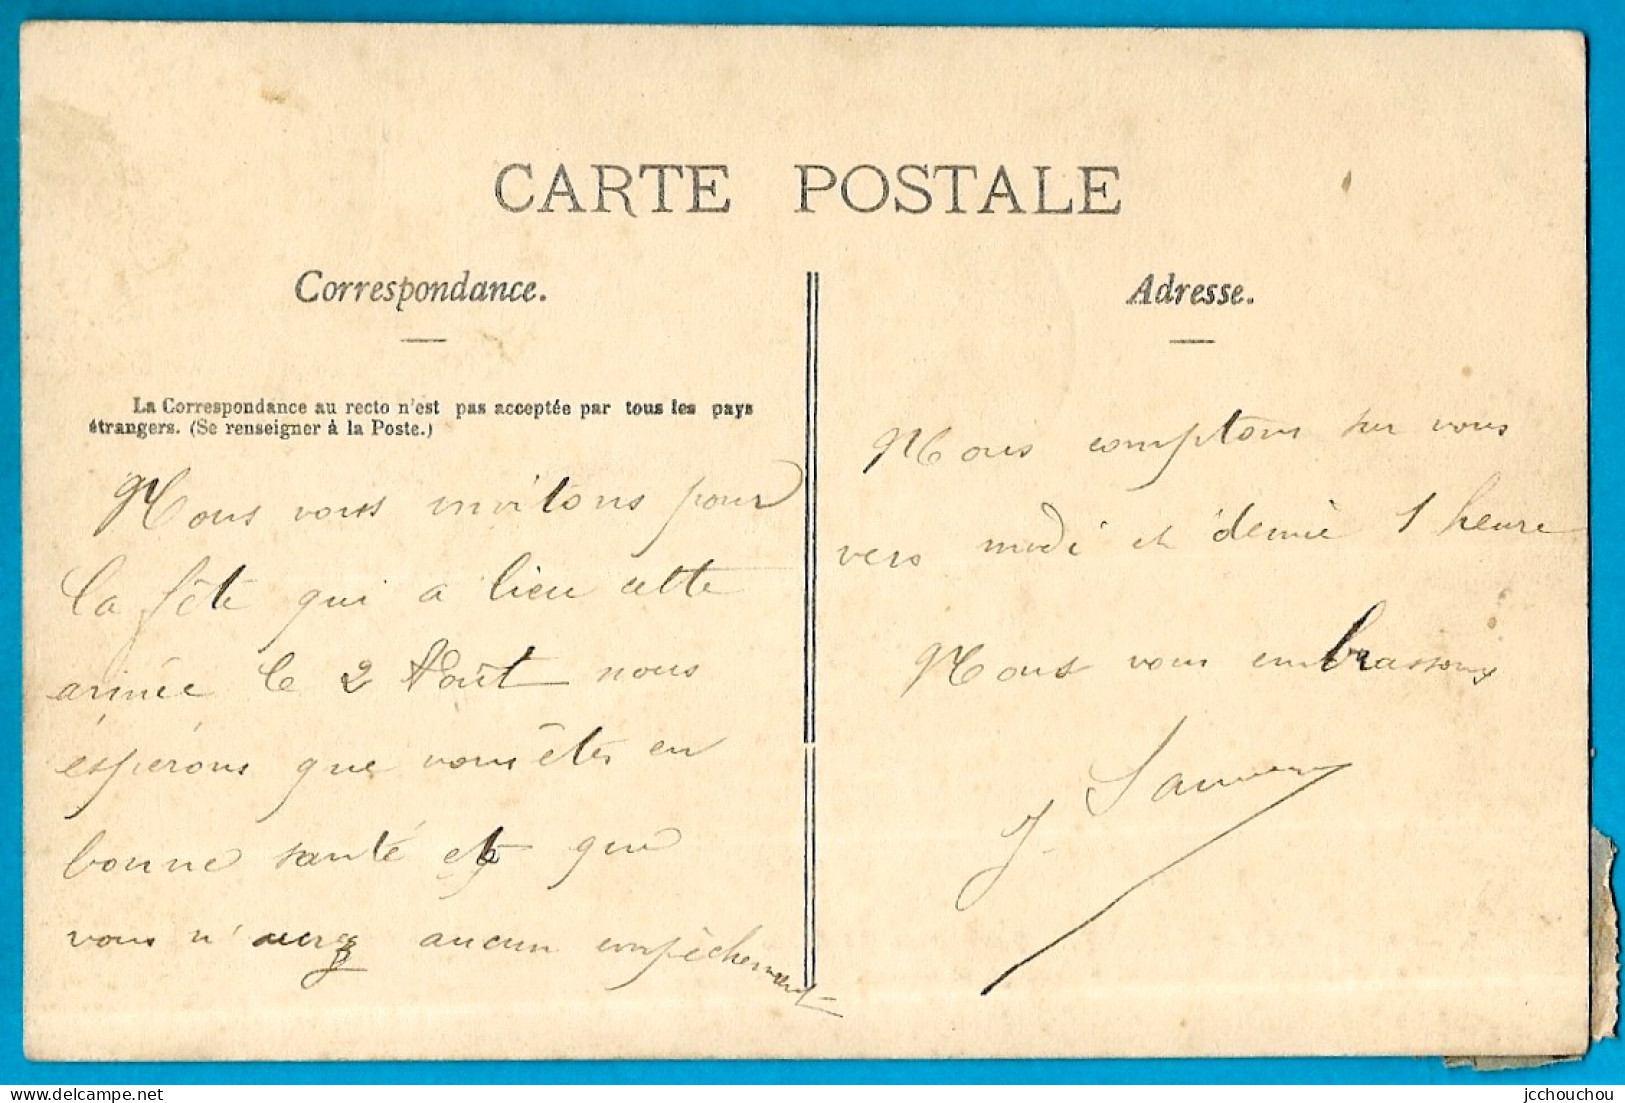 CARTE POSTALE
Correspondance.
Adresse.
La Correspondance au recto n'est pas acceptée par tous les pays
étrangers. (Se renseigner à la Poste.)
Nous vous invitons pour
la fête qui a lieu cette
année le 2 Août nous
éspérons que vous êtes en
bonne santé et que
vous n'aurez aucun empêchement
Nous comptons sur vous
vers midi et demie 1 heure
Nous vous embrassons
J.
delcampe.net
jcchouchou